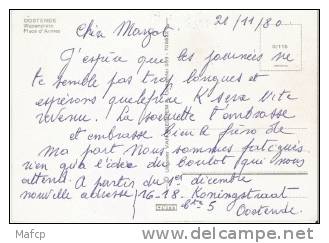 21/11/80
OOSTENDE
Wapenplein
Place d'Armes
Chère Margot
J'espère que tes journées ne
te semble pas trop longues et
espérons que le frère K'sera vite
revenu. La te t'embrasse
et embrasse Kim a frère de
ma part Nous sommes fatigués
rien qu'a l'idée du boulot qui nous
attend. A partir du 1er décembre
nouvelle adresse 16-18 Koningstraat
bte 5
Oostende.
Mafcp